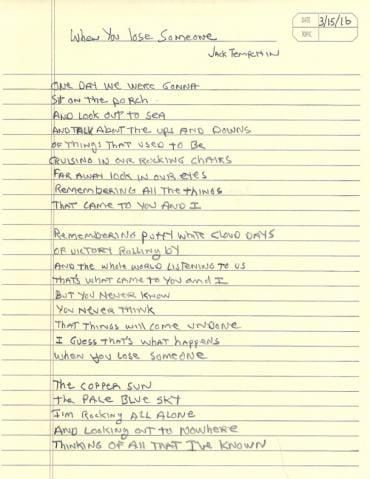 DATE 3/15/16
When You Lose Someone
Jack Tempchin
ONE DAY WE WERE GONNA
Sit on the porch
AND Look out to SEA
AND TALK About the ups AND DOWNS
OF THINGS THAT USED TO BE
CRUISING IN OUR ROCKING CHAIRS
FAR AWAY look IN OUR EYES
Remembering All the things
THAT CAME TO YOU AND I
Remembering puffy white cloud DAYS
OF VICTORY Rolling by
AND the whole WORLD LISTENING TO US
THAT'S WHAT CAME TO YOU and I
BUT YOU NEVER KNOW
YOU NEVER THINK
THAT THINGS will COME UNDONE
I GUESS THAT'S WHAT happens
When you lose SOMEONE
The COPPER SUN
the PALE BLUE SKY
I'm Rocking ALL ALONE
AND Looking out to NOWHERE
THINKING OF All THAT I'VE KNOWN